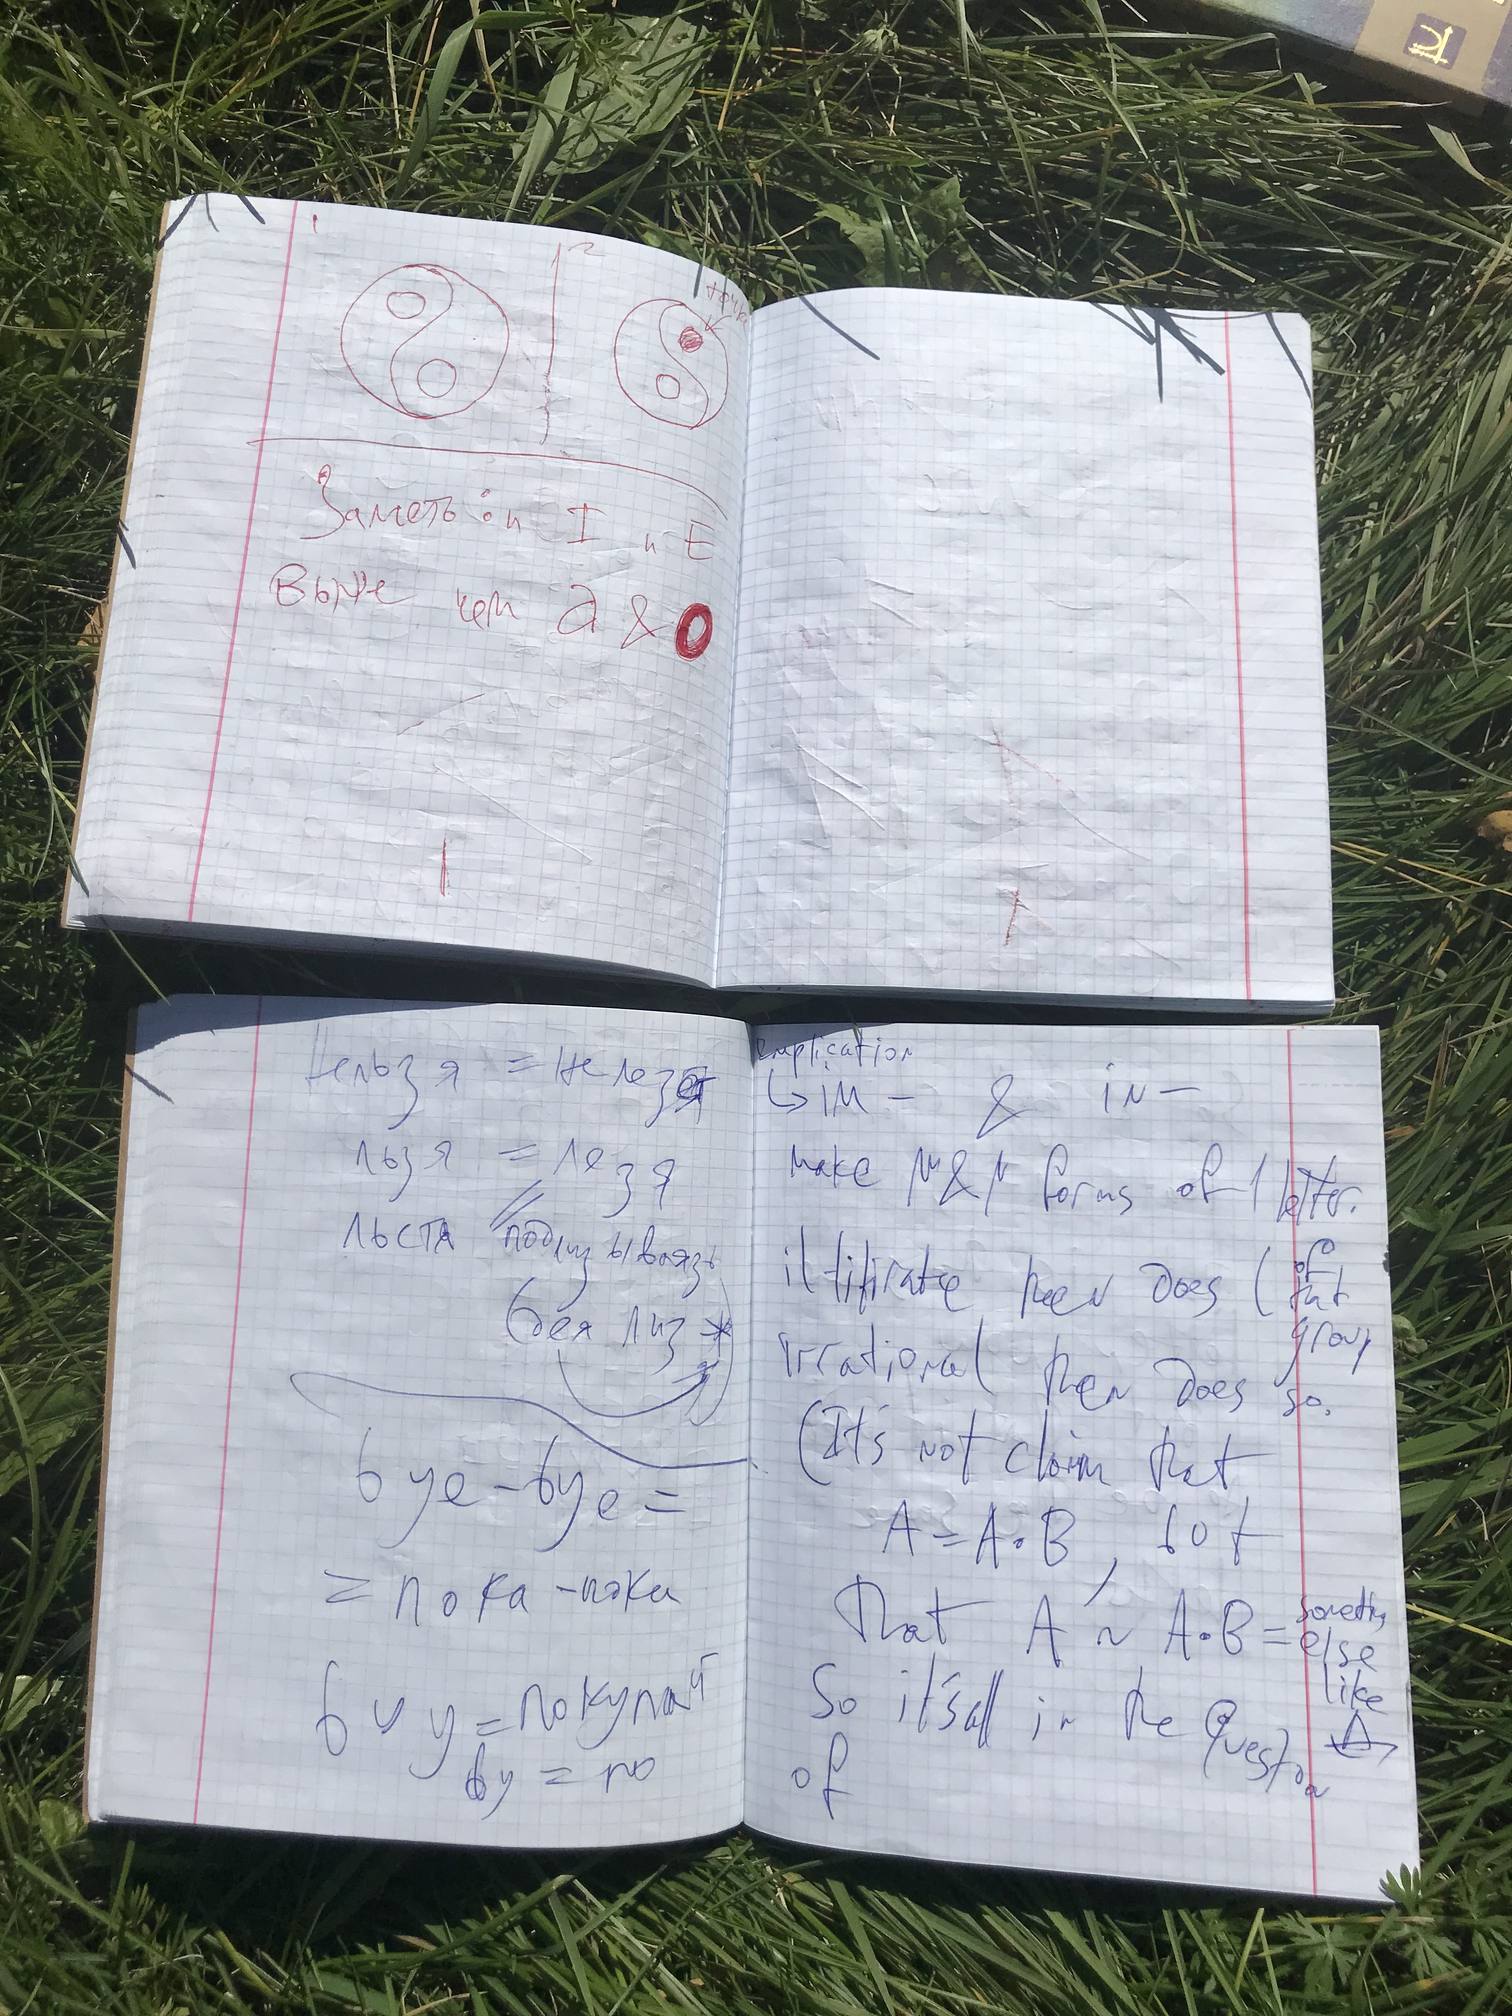 1
2
Заметь : и I и E
Выше чем а & О
нельзя = не лезя
льзя = лезя
льстя подлизываясь
(бея лиз
bye-bye =
= пока-пока
buy = покупай
by = по
implication
↳ im - & in -
make м & н forms of 1 letter.
then does (of that group
irrational then does so.
(It's not claim that
A = A·B, bot
that A ~ A·B = something else like
So it's all in the Question
of